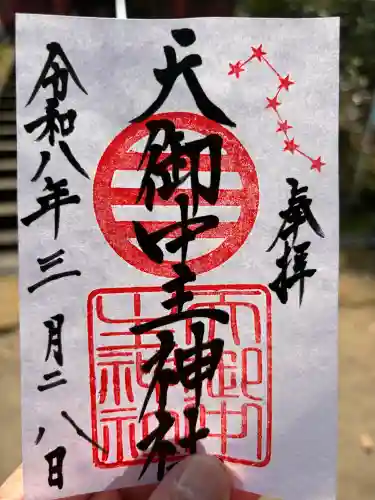 奉拝
天御中主神社
令和八年三月二八日
天御中
主神社